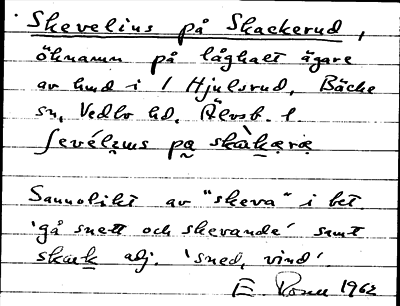 Skevelius på Skackerud,
öknamn på låghalt ägare
av hmd i 1 Hjulsrud, Bäcke
sn, Vedbo hd, Älvsb. l.
ʃevélɪɯs pɑ skàkærɑ
Sannolikt av "skeva" i bet
'gå snett och skevande' samt
skack adj. 'sned, vind'.
E 1962